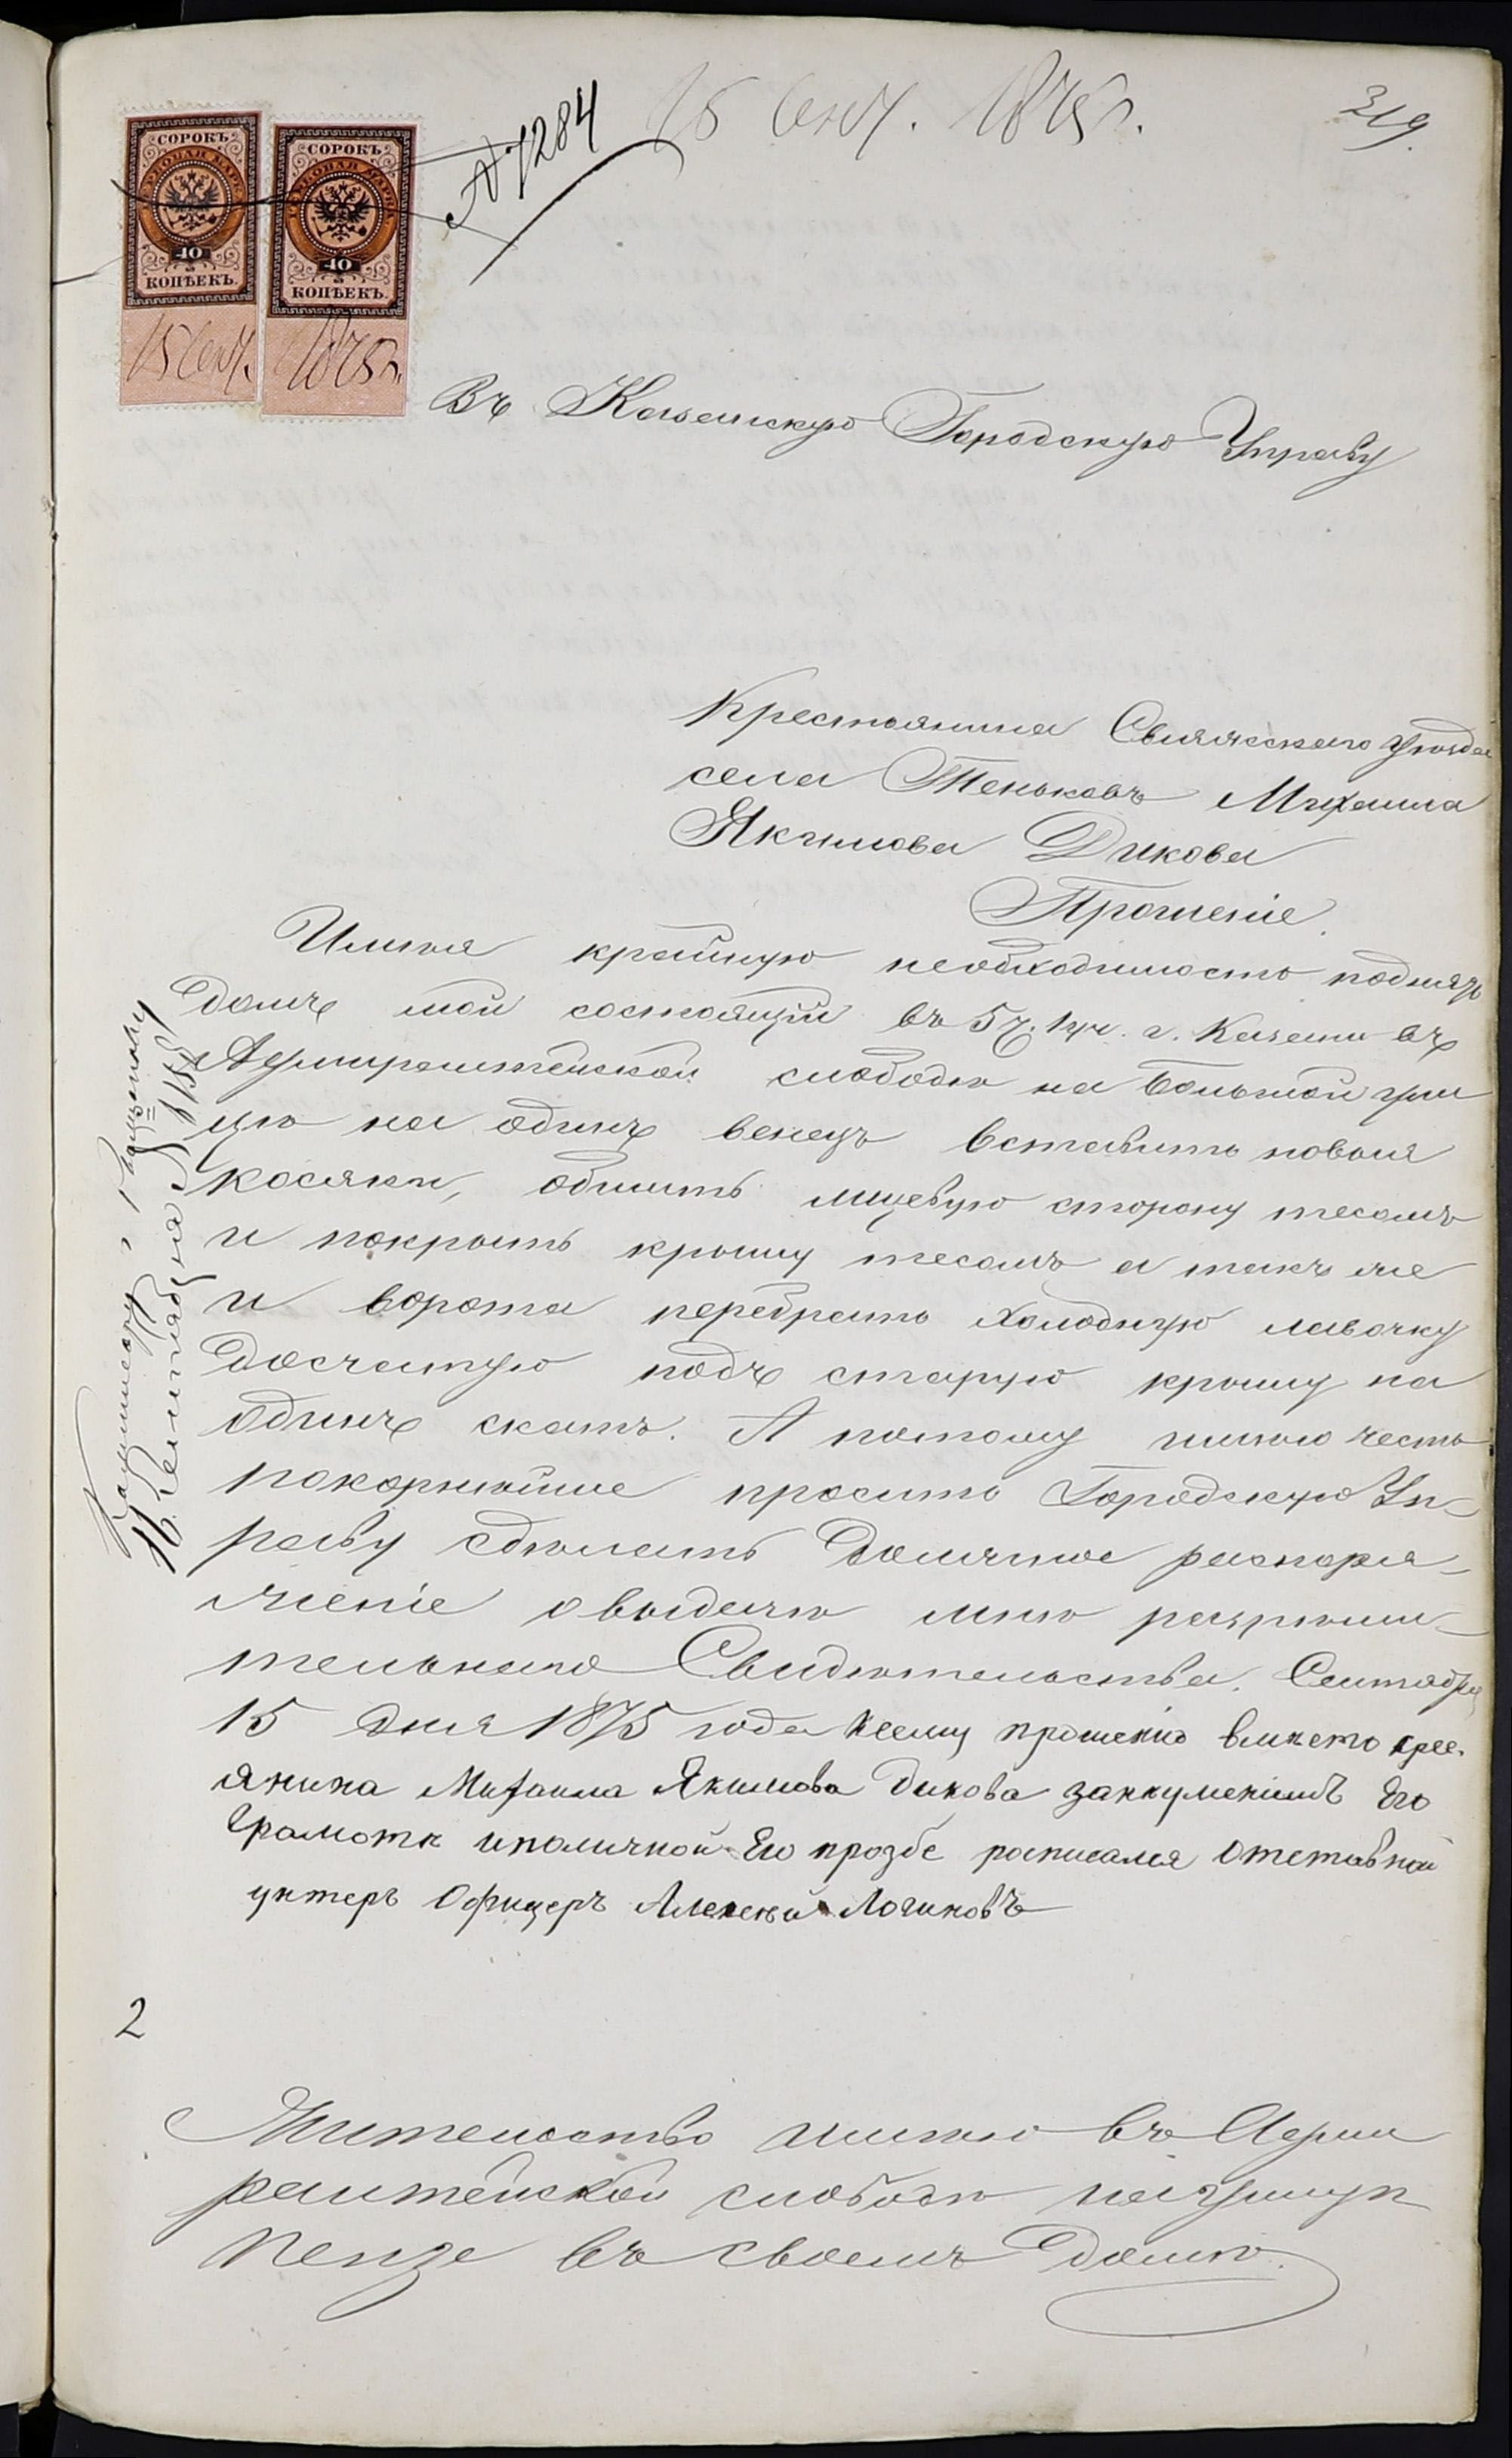 15 Сент. 1875 г.
319.
№ 7284
СОРОКЪ
ГЕРБОВАЯ МАРКА
40
КОПѢЕКЪ.
СОРОКЪ
ГЕРБОВАЯ МАРКА
40
КОПѢЕКЪ.
15 Сент. 1875 г.
Въ Казанскую Городскую Управу
Крестьянина Свіяжскаго уѣзда
села Теньковъ Михаила
Якимова Дикова
Прошеніе.
Имѣя крайнюю необходимость поднять
домъ мой состоящій въ 5 ч. 1 уч. г. Казани въ
Адмиралтейской слободѣ на Большой ули
цѣ на одинъ венецъ вставить новыя
косяки, обшить лицевую сторону тесомъ
и покрыть крышу тесомъ а такъ же
и ворота перебрать холодную лавочку
досчатую подъ старую крышу на
одинъ скатъ. А потому имѣю честь
покорнѣйше просить Городскую Уп-
раву сдѣлать должное распоря-
женіе о выдачѣ мнѣ разрѣши-
тельнаго Свидѣтельства. Сентября
15 дня 1875 года Ксему прошенію вместо крес.
янина Михаила Якимова Дикова занеуменіемъ Его
Грамоте иполичной Его прозбе росписался Отставной
унтеръ Офицеръ Алексей Логиновъ
16 Сентября
2
Жительство имѣю въ Адми
ралтейской слободѣ на улицѣ
въ своемъ домѣ.